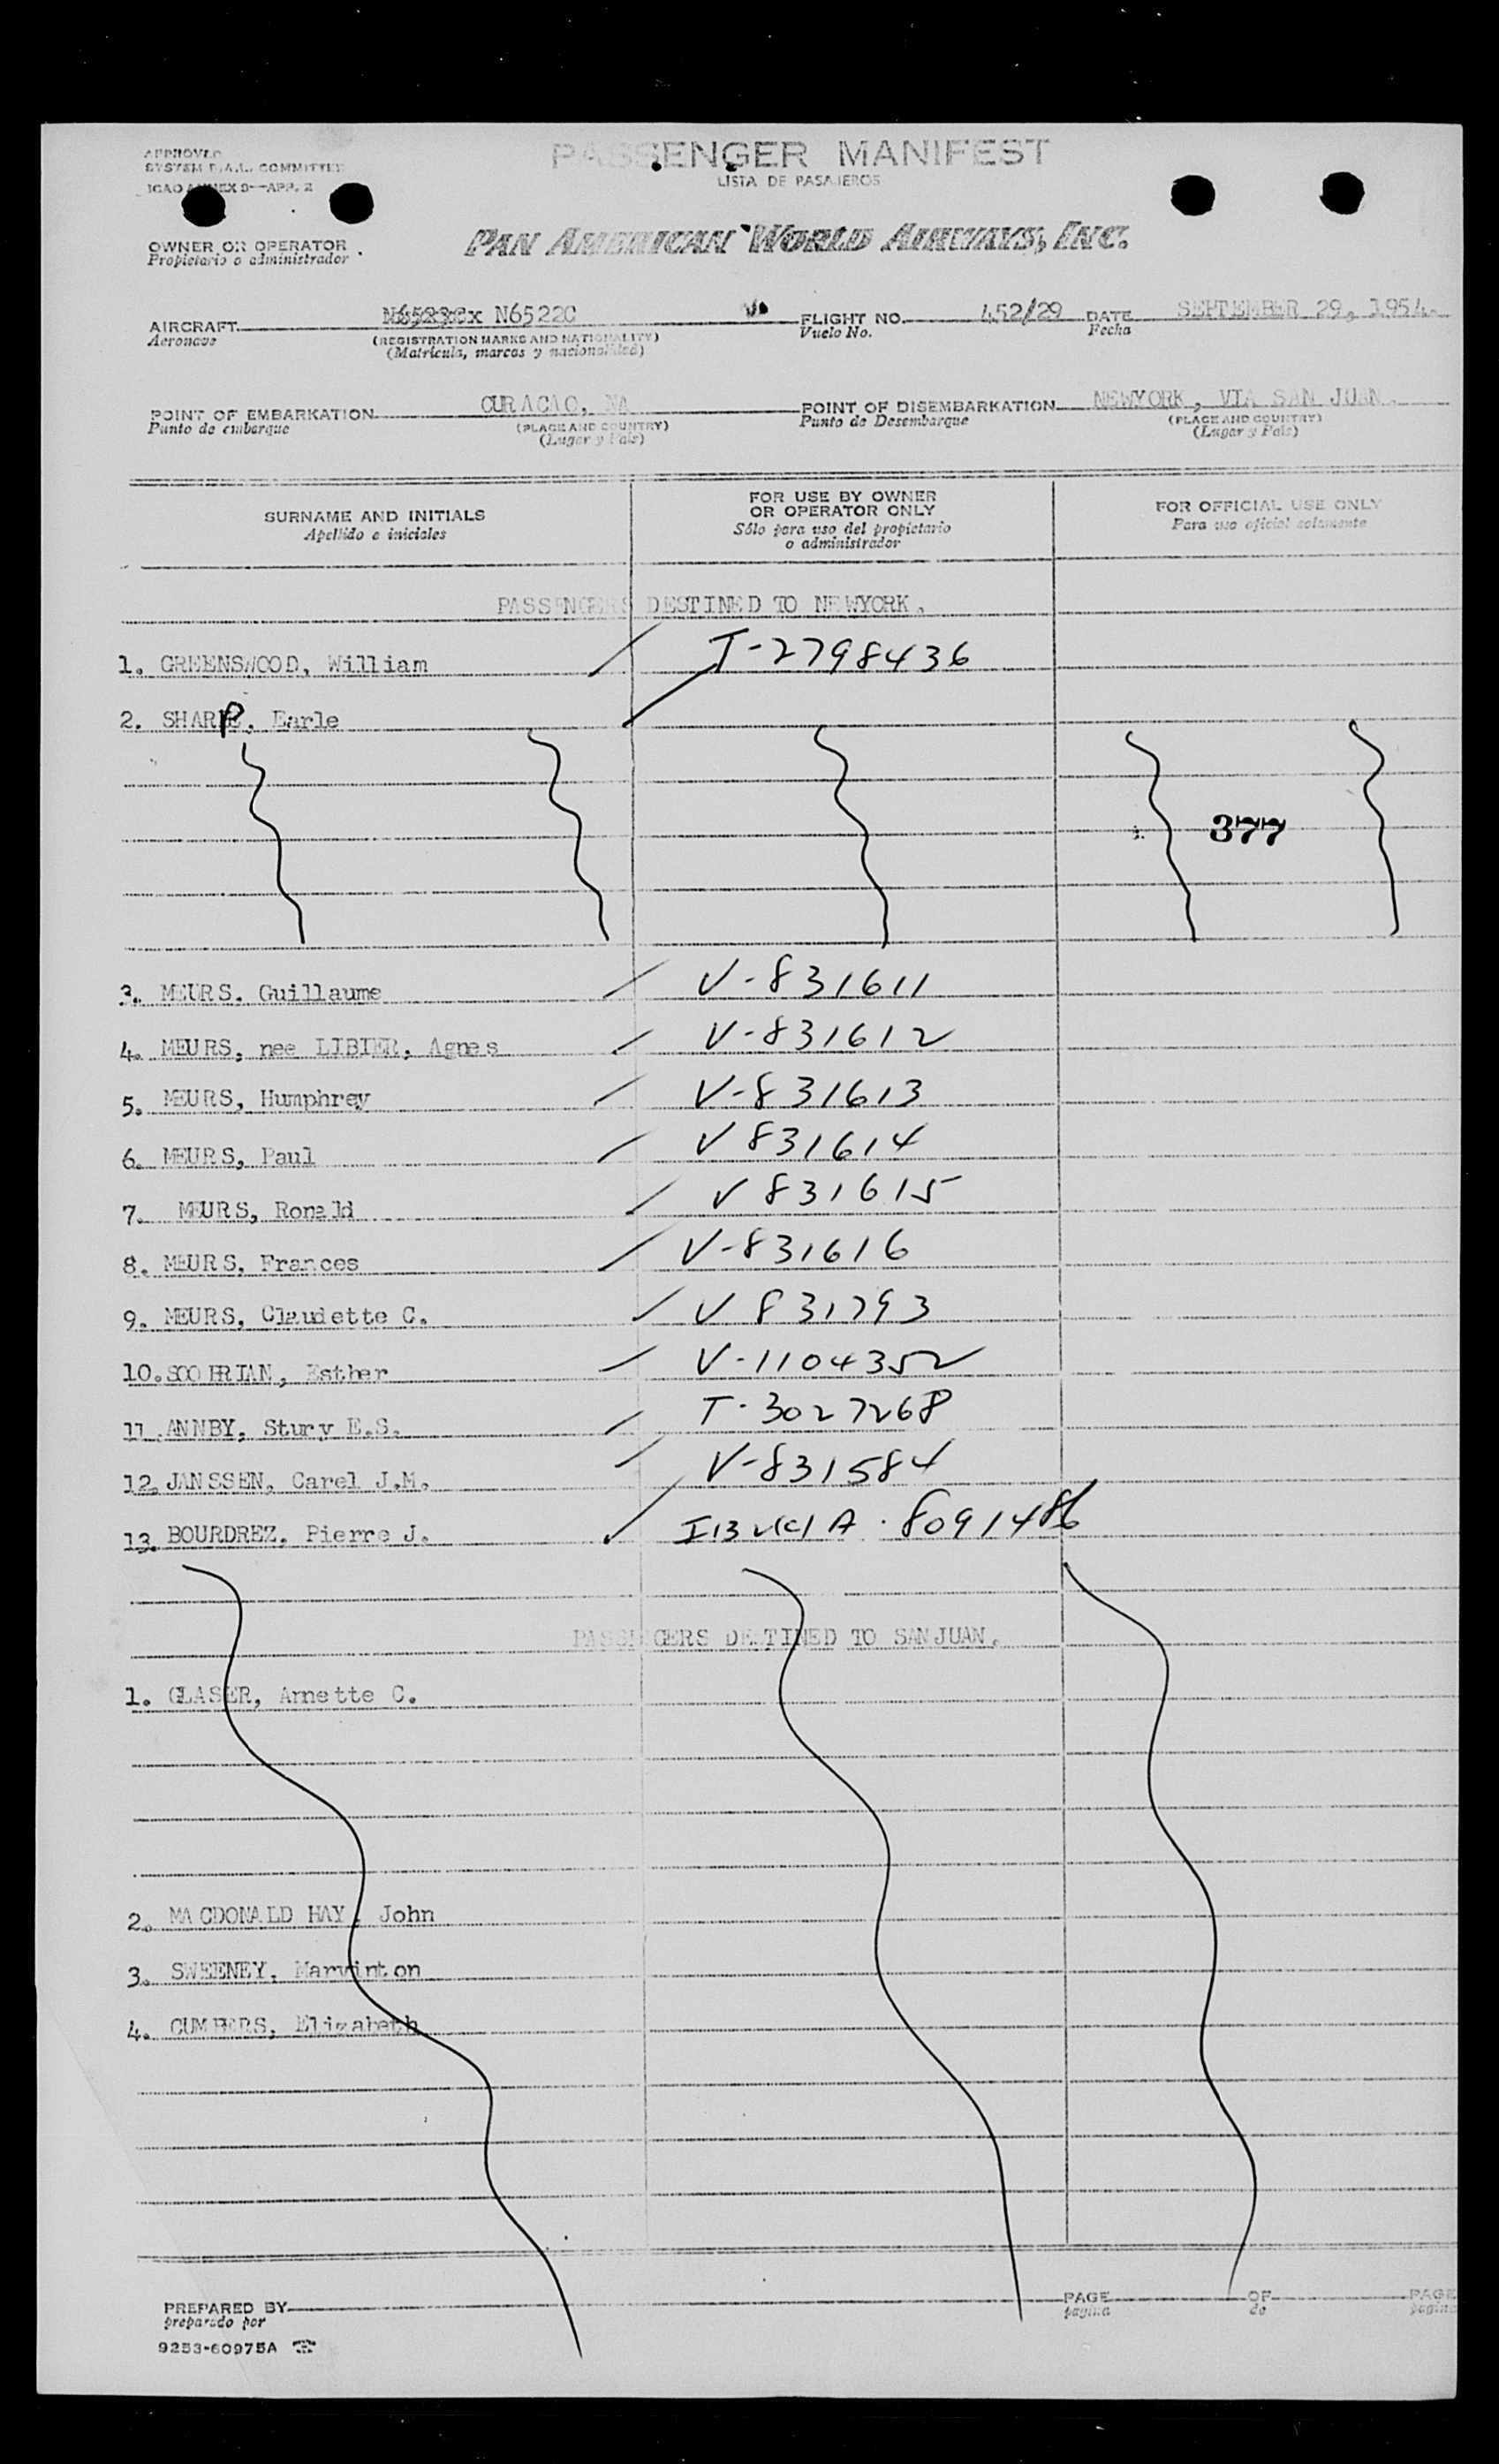 APPROVED
SYSTEM F.A.L. COMMITTEE
ICAO ANNEX 9—APP. 2
PASSENGER MANIFEST
LISTA DE PASAJEROS
OWNER OR OPERATOR
Propietario o administrador
PAN AMERICAN WORLD AIRWAYS, INC.
AIRCRAFT N6522C FLIGHT NO. 452/29 DATE SEPTEMBER 29, 1954.
Aeronave (REGISTRATION MARKS AND NATIONALITY) Vuelo No. Fecha
(Matrícula, marcas y nacionalidad)
POINT OF EMBARKATION CURACAO, NA POINT OF DISEMBARKATION NEWYORK, VIA SAN JUAN.
Punto de embarque (PLACE AND COUNTRY) Punto de Desembarque (PLACE AND COUNTRY)
(Lugar y País) (Lugar y País)
SURNAME AND INITIALS
Apellido e iniciales
FOR USE BY OWNER
OR OPERATOR ONLY
Sólo para uso del propietario
o administrador
FOR OFFICIAL USE ONLY
Para uso oficial solamente
PASSENGERS DESTINED TO NEWYORK.
1. GREENSWOOD, William T-2798436
2. SHARP, Earle
377
3. MEURS. Guillaume V-831611
4. MEURS, nee LIBIER, Agnes V-831612
5. MEURS, Humphrey V-831613
6. MEURS, Paul V 831614
7. MEURS, Ronald V 831615
8. MEURS, Frances V-831616
9. MEURS, Claudette C. V 831793
10. SOOHRIAN, Esther V-1104352
11. ANNBY, Stury E.S. T-3027268
12. JANSSEN, Carel J.M. V-831584
13. BOURDREZ. Pierre J. A-8091486
PASSENGERS DESTINED TO SANJUAN.
1. GLASER, Arnette C.
2. MACDONALD HAY, John
3. SWEENEY, Marvinton
4. CUMBERS, Elizabeth
PREPARED BY PAGE OF PAGE
preparado por página de página
9253-60975A